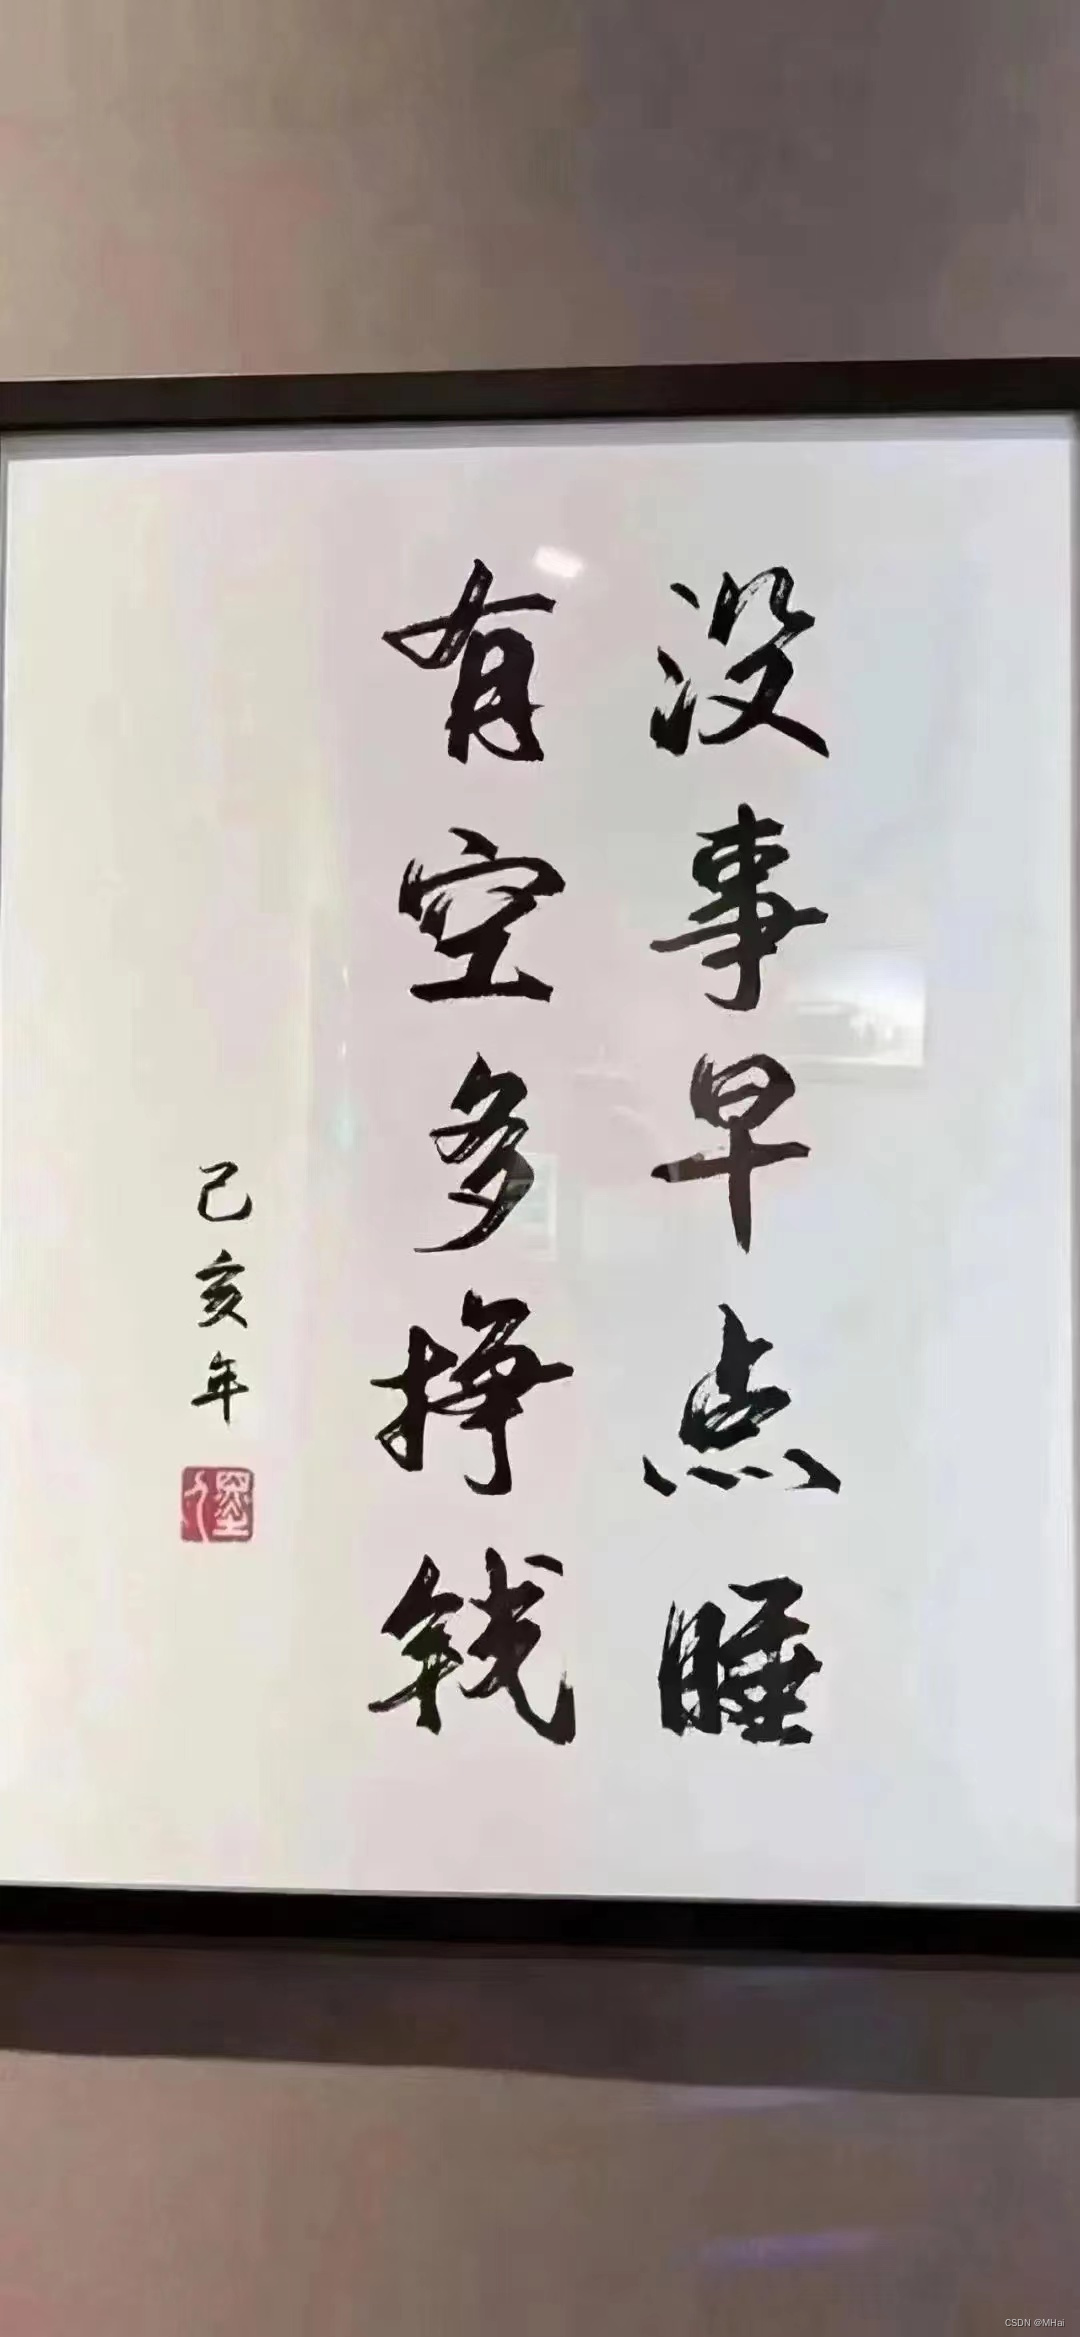 没事早点睡
有空多挣钱
己亥年
CSDN @MHai